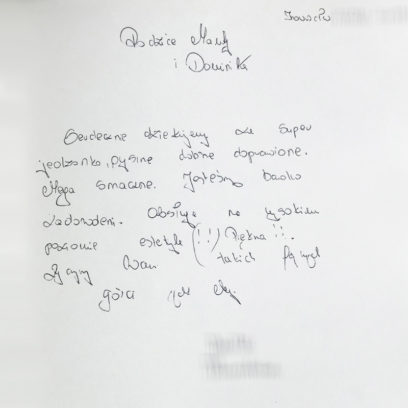 Rodzice Marty
i Dominika
Serdecznie dziękujemy za super
jedzonko, pyszne dobrze doprawione.
Mega smaczne. Jesteśmy bardzo
zadowoleni. Obsługa na wysokim
poziomie estetyka (!!) Piękna !!.
Życzymy Wam takich